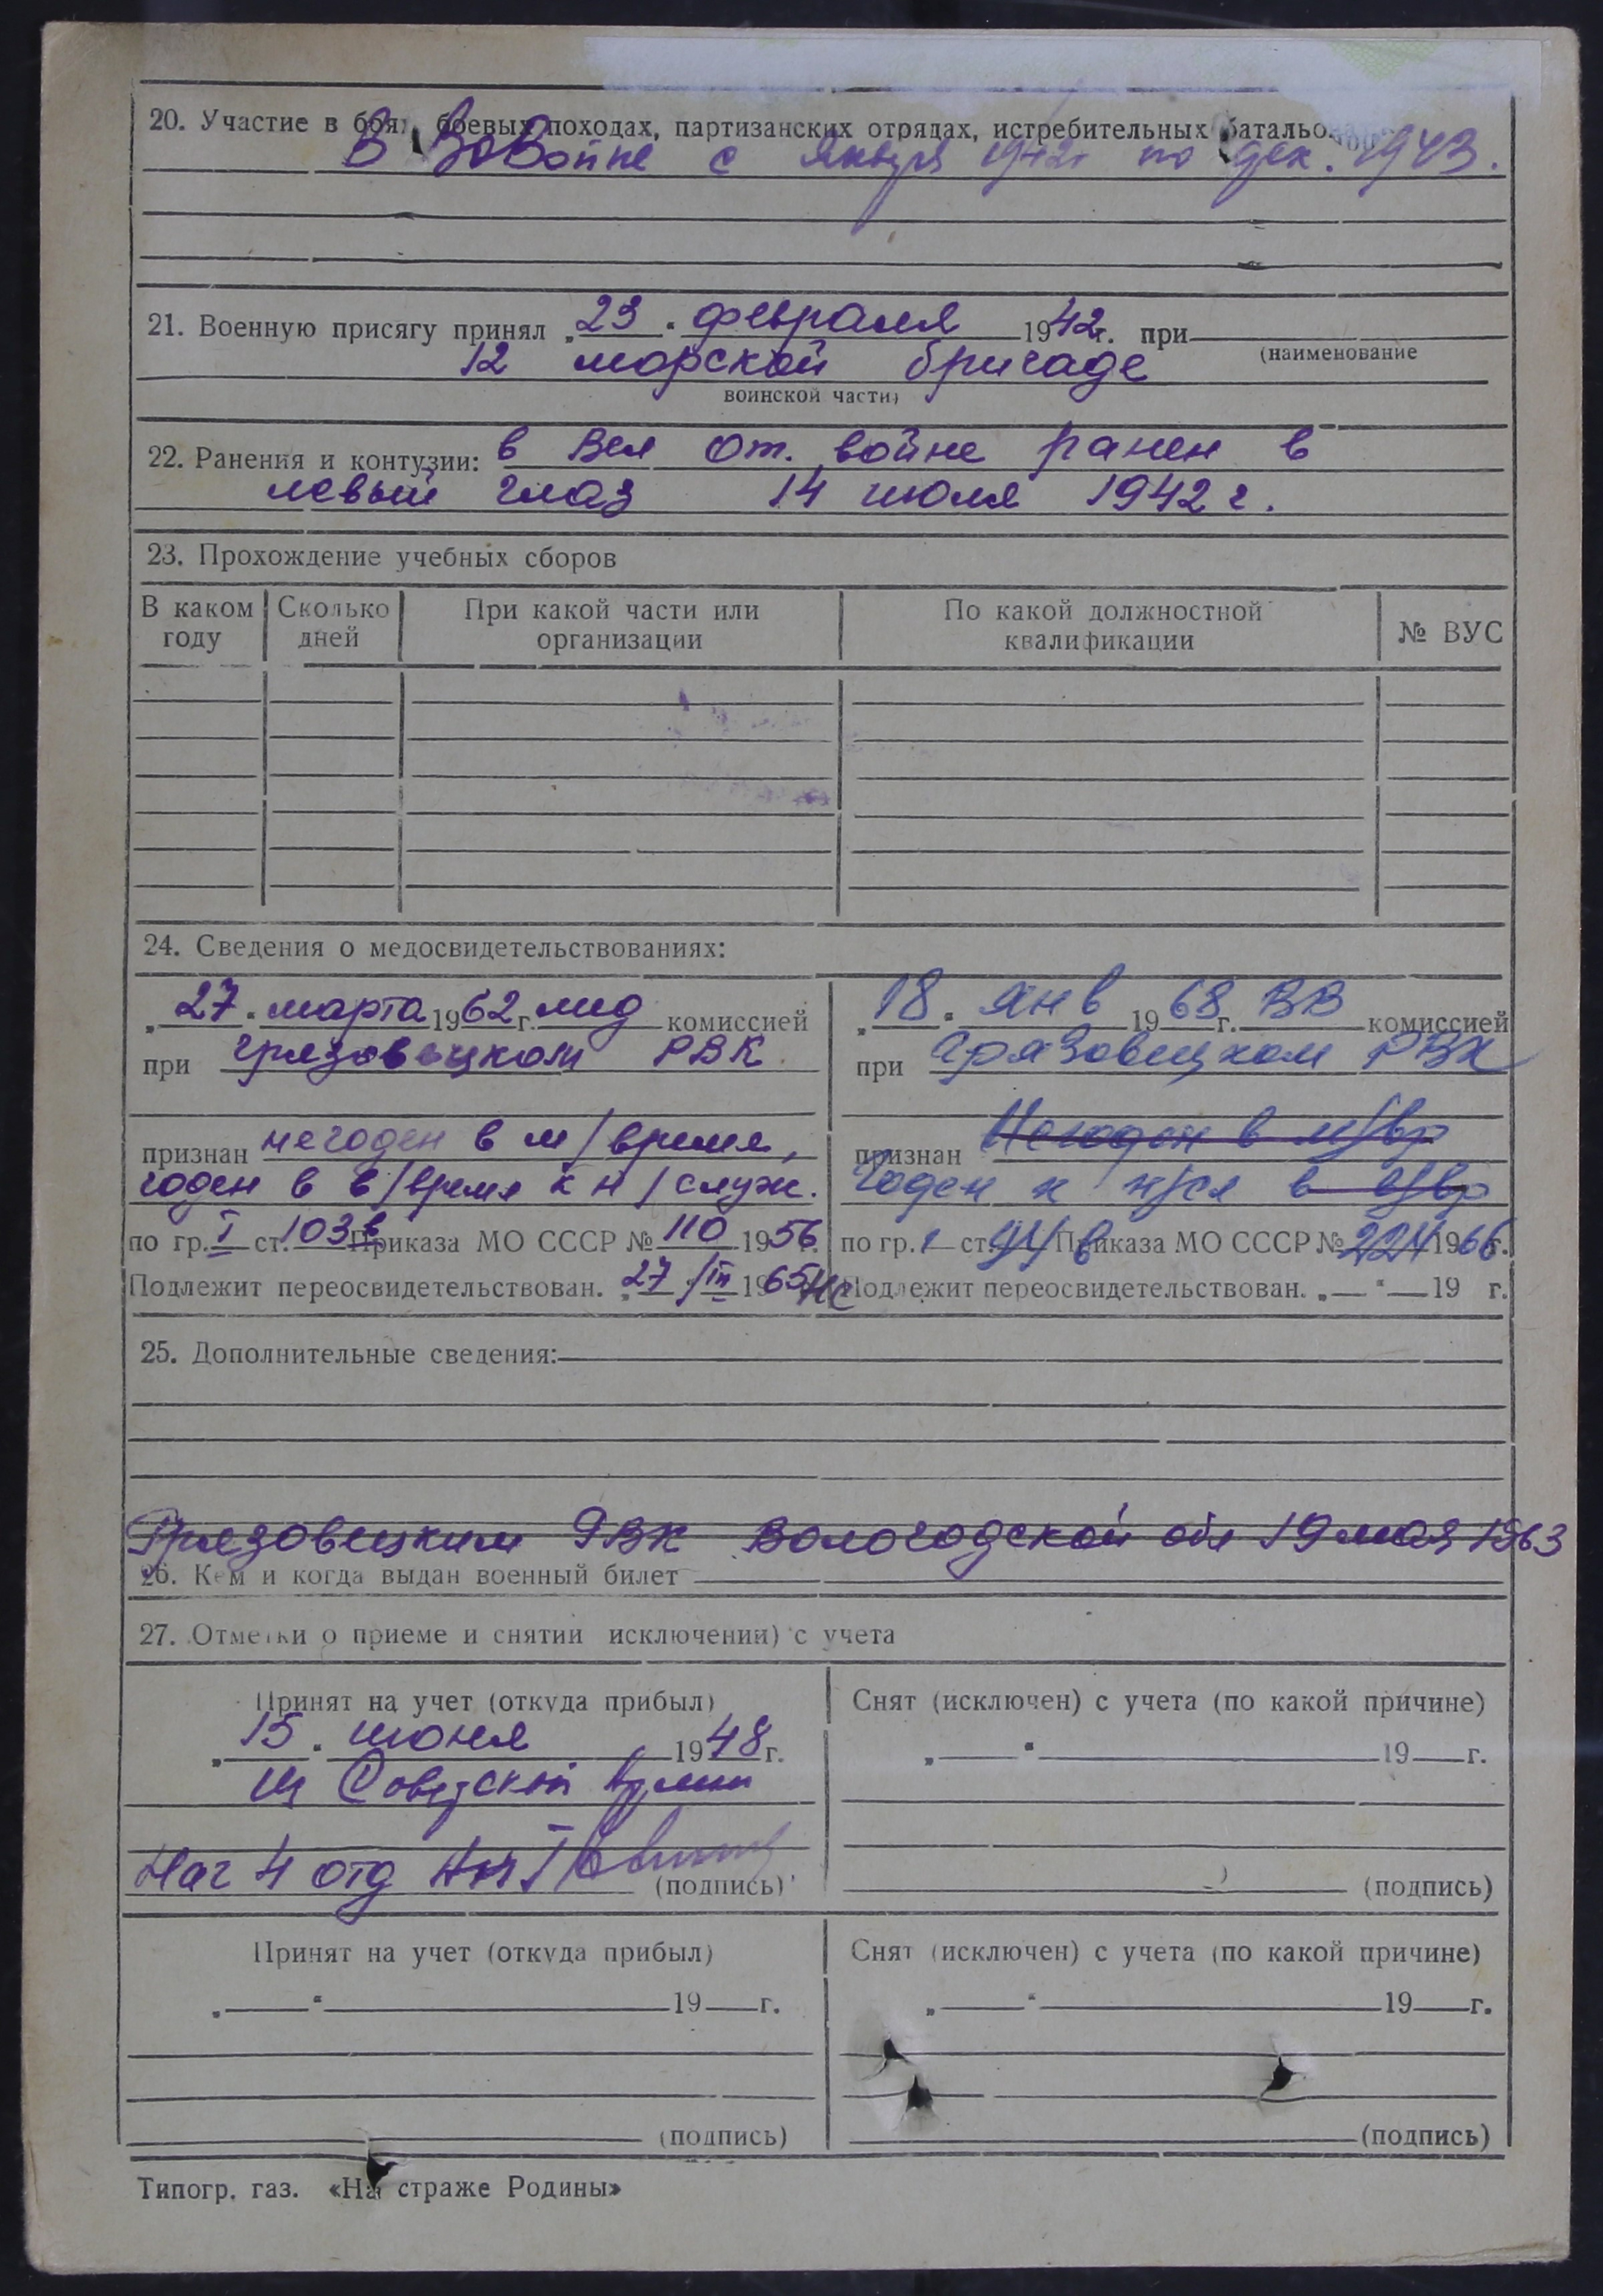 20. Участие в боях, боевых походах, партизанских отрядах, истребительных батальо
В ВоВойне с января 1942г по дек. 1943.
21. Военную присягу принял „23" февраля 1942г. при
(наименование
12 морской бригаде
воинской части)
22. Ранения и контузии: в Вел От. войне ранен в
левый глаз 14 июля 1942 г.
23. Прохождение учебных сборов
В каком году Сколько дней При какой части или организации По какой должностной квалификации № ВУС
24. Сведения о медосвидетельствованиях:
„27" марта 1962 г. мед комиссией
при Грязовецком РВК
признан негоден в м/время,
годен в в/время к н/служ.
по гр. I ст. 103в Приказа МО СССР № 110 1956 г.
Подлежит переосвидетельствован. „27"/III 1965
„18" янв 1968 г. ВВ комиссией
при Грязовецком РВК
признан Негоден в м/вр
Годен к н/сл в в/вр
по гр. 1 ст. в Приказа МО СССР № 1966 г.
Подлежит переосвидетельствован. „—" — 19 г.
25. Дополнительные сведения:
Грязовецким РВК Вологодской обл 19 мая 1963
26. Кем и когда выдан военный билет
27. Отметки о приеме и снятии исключении) с учета
Принят на учет (откуда прибыл)
„15" июня 1948 г.
из Советской Армии
Нач 4 отд
(подпись)
Снят (исключен) с учета (по какой причине)
„ " 19 г.
(подпись)
Принят на учет (откуда прибыл)
„ " 19 г.
(подпись)
Снят (исключен) с учета (по какой причине)
„ " 19 г.
(подпись)
Типогр. газ. «На страже Родины»